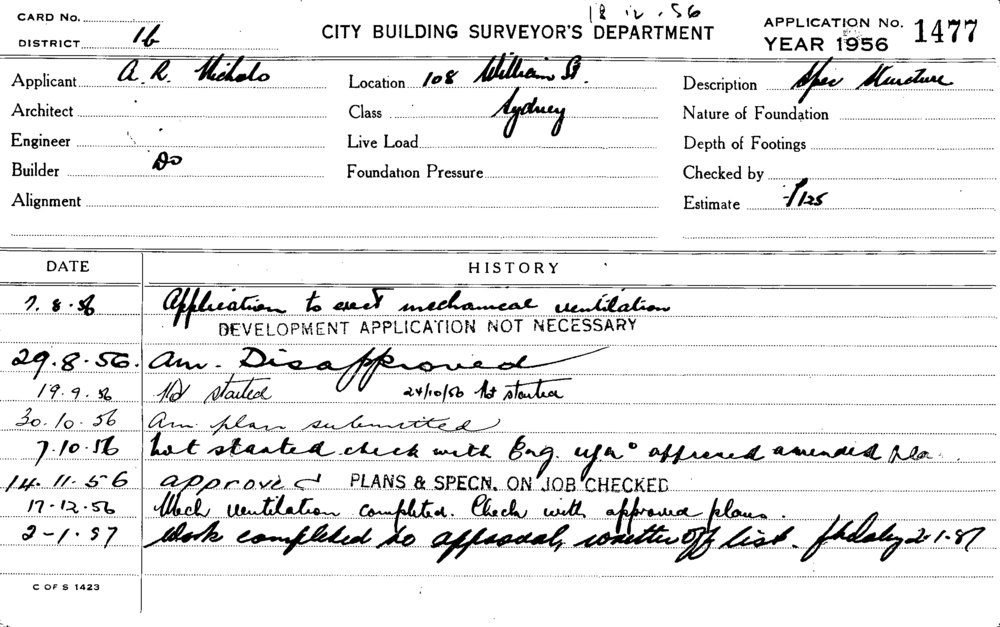 18.12.56
CARD No.
DISTRICT 16
CITY BUILDING SURVEYOR'S DEPARTMENT
APPLICATION No. 1477
YEAR 1956
Applicant A. R. Nichols
Location 108 William St.
Description Spec Structure
Architect
Class Sydney
Nature of Foundation
Engineer
Live Load
Depth of Footings
Builder Do
Foundation Pressure
Checked by
Alignment
Estimate £125
DATE HISTORY
7.8.56 Application to erect mechanical ventilation
DEVELOPMENT APPLICATION NOT NECESSARY
29.8.56. Am. Disapproved
19.9.56 Not started 24/10/56 Not started
30.10.56 Am plan submitted
7.10.56 Not started check with Eng. approved amended
14.11.56 approved PLANS & SPECN. ON JOB CHECKED
17-12.56 Mech ventilation completed. Check with approved plans.
2-1.57 Work completed to approval, written off list. 2-1.57
C OF S 1423